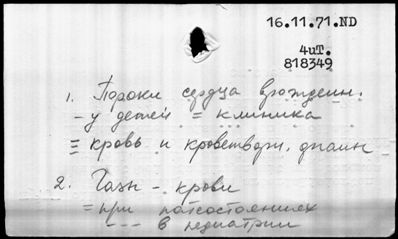 16.11.71.ND
4uT.
818349
1. Пороки сердца врожденн.
- у детей = клиника
= кровь и кроветворн.
2. Газы - крови
= при патсостояниях
--- в педиатрии